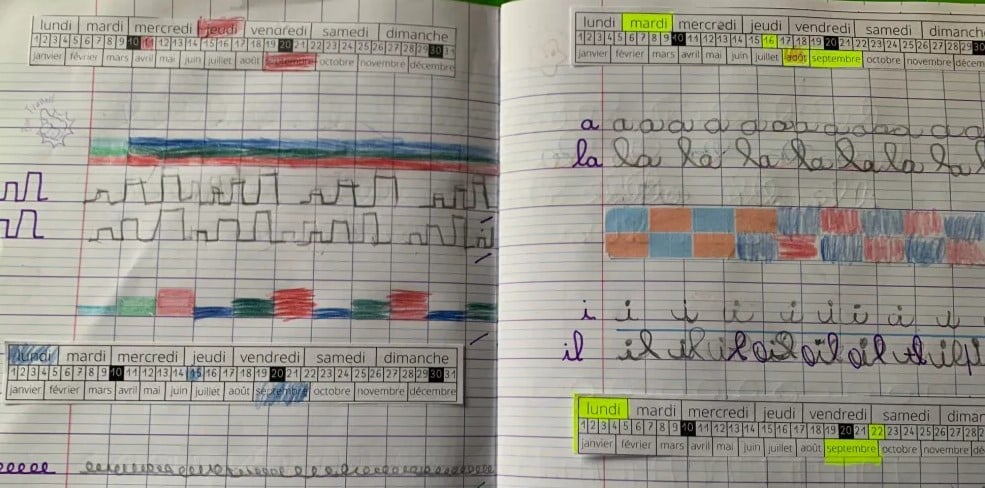 lundi mardi mercredi jeudi vendredi samedi dimanche
1 2 3 4 5 6 7 8 9 10 11 12 13 14 15 16 17 18 19 20 21 22 23 24 25 26 27 28 29 30 31
janvier février mars avril mai juin juillet août septembre octobre novembre décembre
lundi mardi mercredi jeudi vendredi samedi dimanche
1 2 3 4 5 6 7 8 9 10 11 12 13 14 15 16 17 18 19 20 21 22 23 24 25 26 27 28 29 30 31
janvier février mars avril mai juin juillet août septembre octobre novembre décembre
eeeee
lundi mardi mercredi jeudi vendredi samedi dimanche
1 2 3 4 5 6 7 8 9 10 11 12 13 14 15 16 17 18 19 20 21 22 23 24 25 26 27 28 29 30
janvier février mars avril mai juin juillet août septembre octobre novembre décem
a a a a a a a a a a a a a
la la la la la la la la
i i i i i i i i
il il il il
lundi mardi mercredi jeudi vendredi samedi dimar
1 2 3 4 5 6 7 8 9 10 11 12 13 14 15 16 17 18 19 20 21 22 23 24 25 26 27 28
janvier février mars avril mai juin juillet août septembre octobre novembre dé